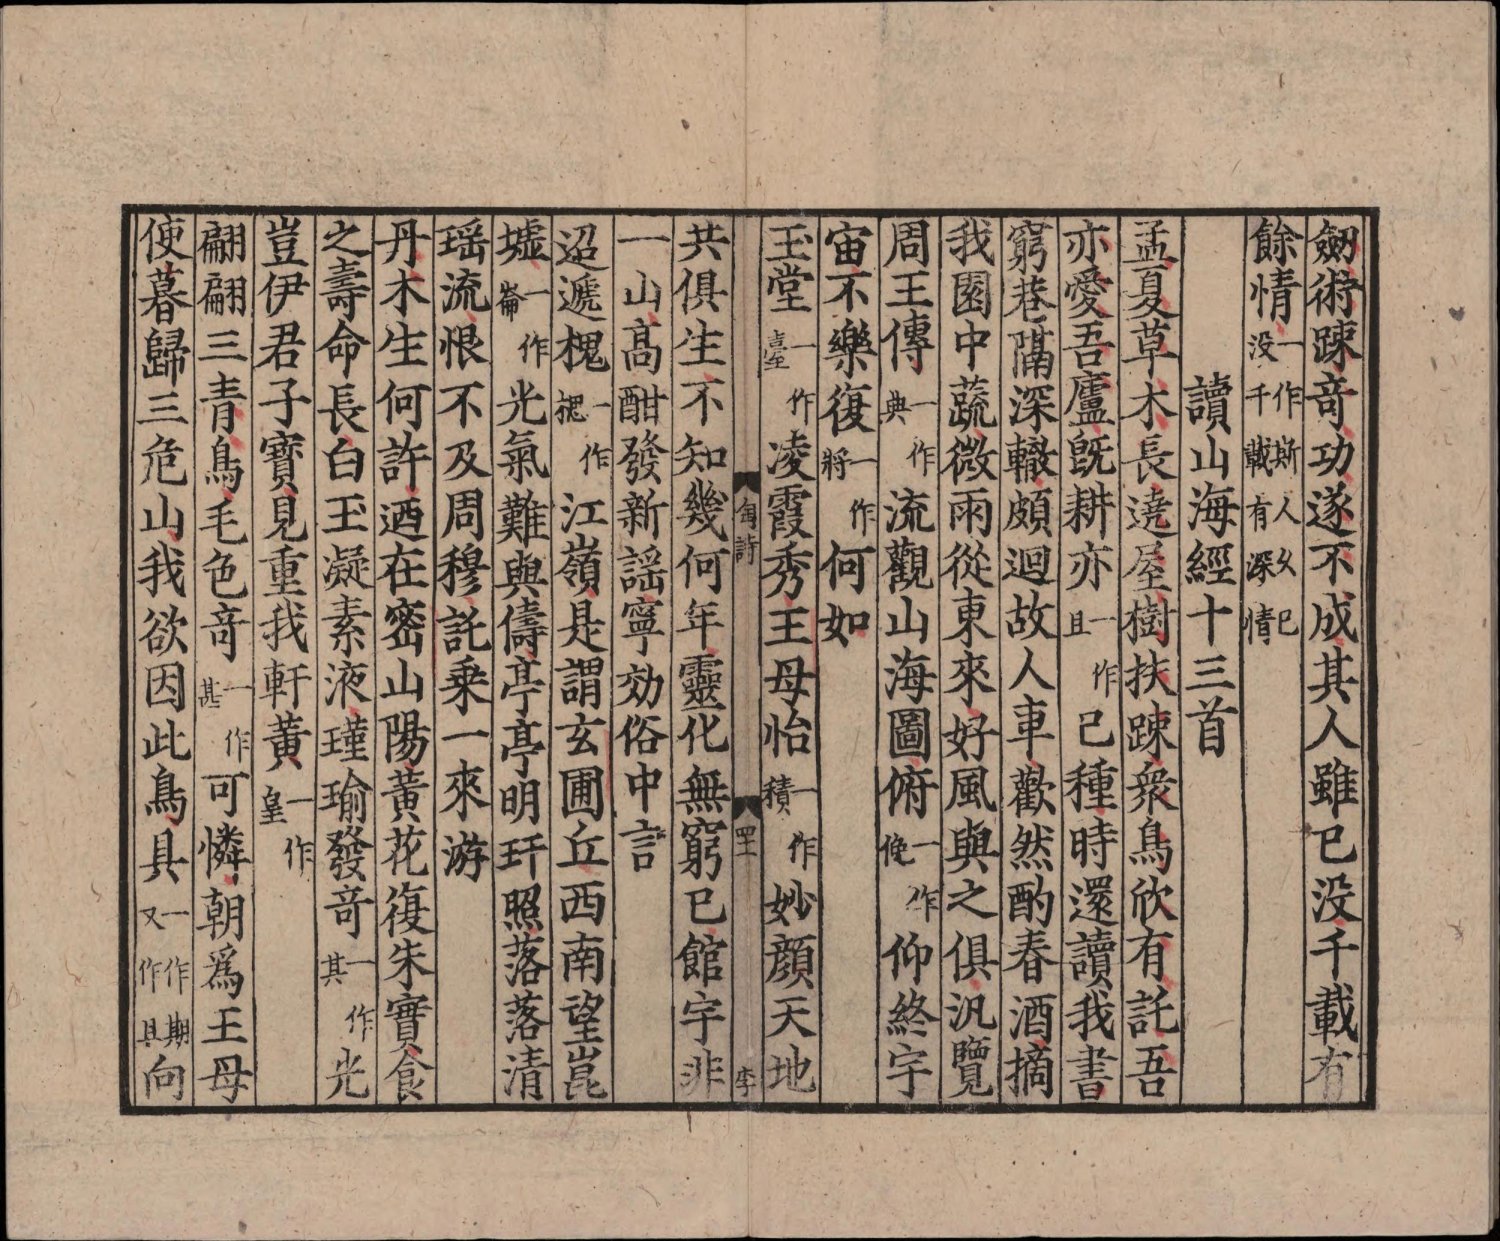 劒術踈竒功遂不成其人雖已没千載有
餘情一作斯人乆已没千載有深情
讀山海經十三首
孟夏草木長遶屋樹扶踈衆鳥欣有託吾
亦愛吾廬旣耕亦一作且已種時還讀我書
窮巷隔深轍頗迴故人車歡然酌春酒摘
我園中蔬微雨從東來好風與之俱汎覽
周王傳一作典流觀山海圖俯一作俛仰終宇
宙不樂復一作將何如
玉堂一作臺凌霞秀王母怡一作積妙顔天地
陶詩 四 李
共俱生不知幾何年靈化無窮已館宇非
一山髙酣發新謡寧効俗中言
迢遞槐一作槐江嶺是謂玄圃丘西南望崑
墟一作崙光氣難與儔亭亭明玕照落落清
瑶流恨不及周穆託乗一來游
丹木生何許迺在宻山陽黄花復朱實食
之壽命長白玉凝素液瑾瑜發竒一作其光
豈伊君子寳見重我軒黄一作皇
翩翩三青鳥毛色竒一作甚可憐朝爲王母
使暮歸三危山我欲因此鳥具一作期又作且向